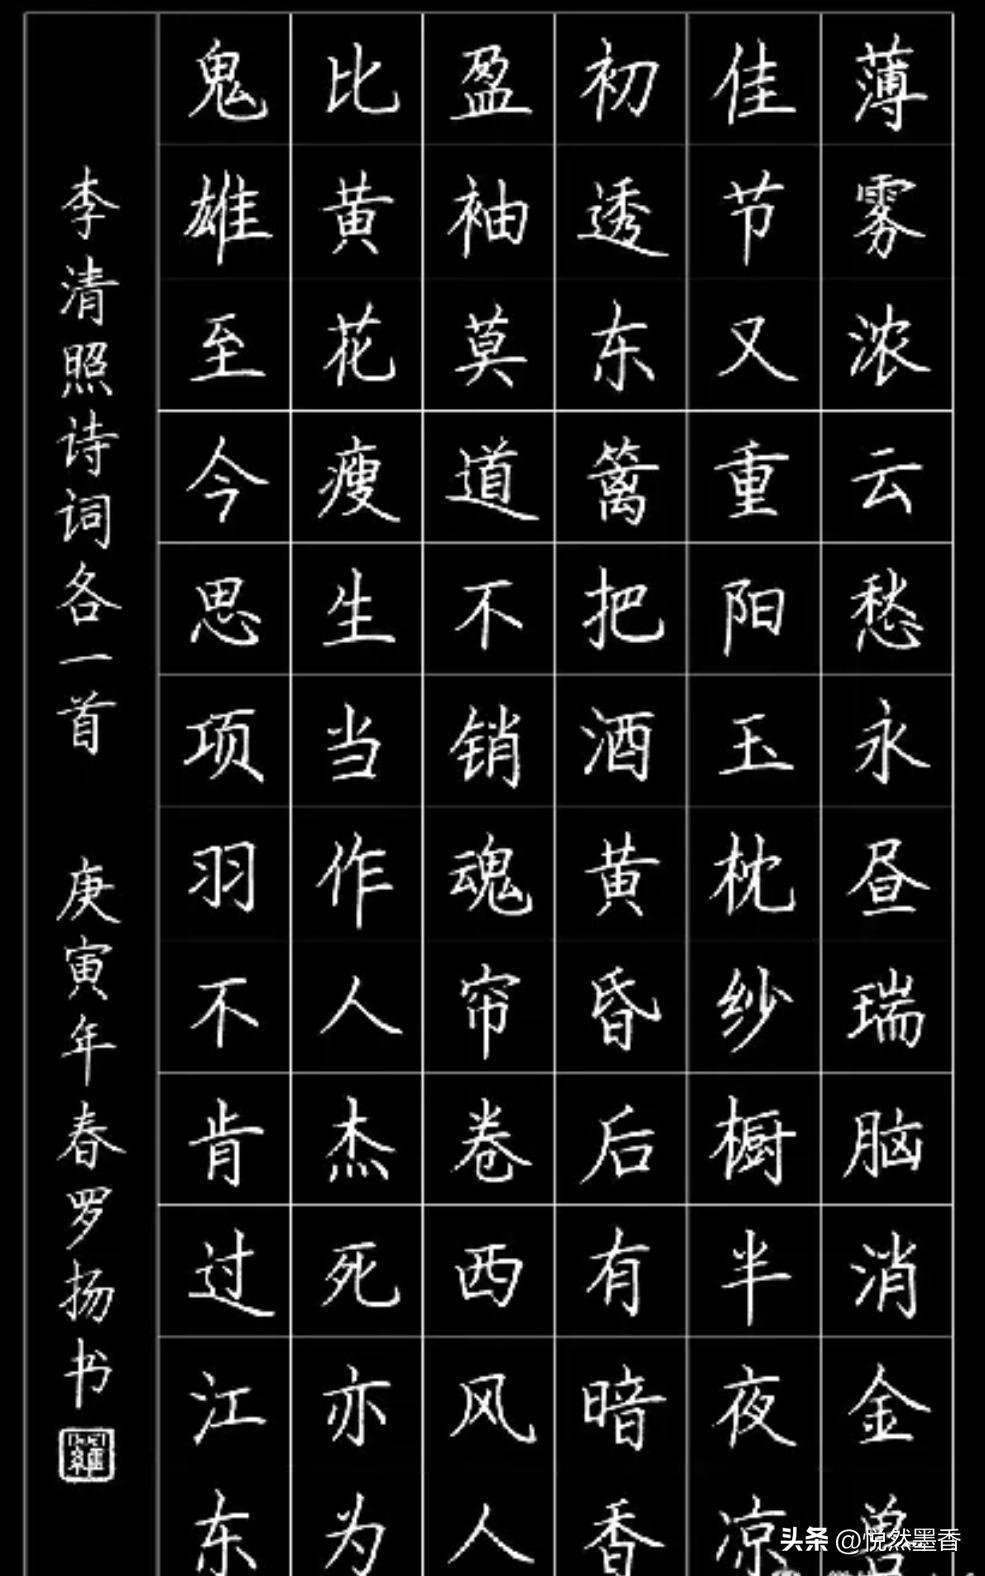 薄雾浓云愁永昼瑞脑消金兽
佳节又重阳玉枕纱橱半夜凉
初透东篱把酒黄昏后有暗香
盈袖莫道不销魂帘卷西风人
比黄花瘦生当作人杰死亦为
鬼雄至今思项羽不肯过江东
李清照诗词各一首 庚寅年春罗扬书
头条 @悦然墨香